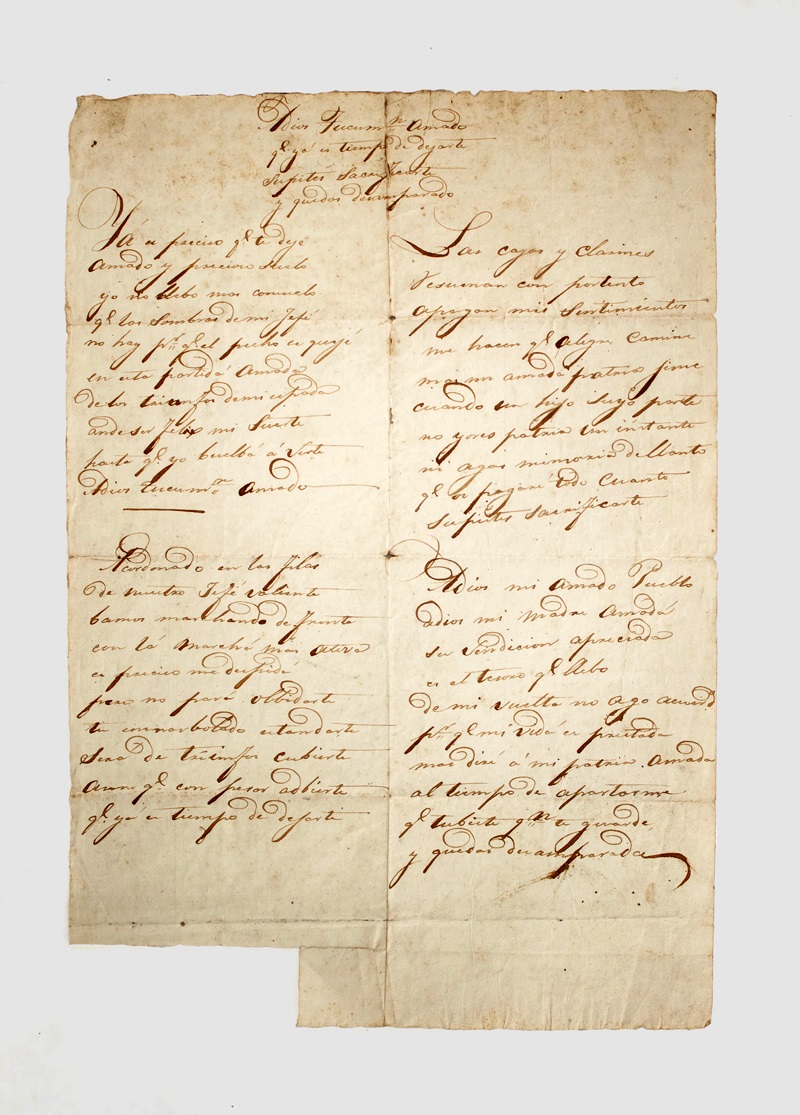 Adios Tucumn. amado
ql. ya es tiempo de dejarte
supites sacrificarte
y quedas desamparado
Ya es preciso ql. te deje
amado y precioso suelo
yo no llebo mas consuelo
ql. las sombras de mi Jefe
no hay pr. ql. el pecho se queje
en esta partida amada
de los triunfos de mi espada
ande ser felix mi suerte
hasta ql. yo buelba á verte
Adios Tucumn. amado
Acordonado en las filas
de nuestro Jefe valiente
bamos marchando de frente
con la marcha mas ativa
es preciso me despida
pero no para olbidarte
tu enarbolado estandarte
sera de triunfos cubierto
aun ql. con pesar adbierto
ql. ya es tiempo de dejarte
Las cajas y clarines
resuenan con portento
apagan mis sentimientos
me hacen ql. alegre camine
mas mi amada patria jime
cuando un hijo suyo parte
no yores patria un instante
ni agas memoria de llanto
ql. os pagaré todo cuanto
supites sacrificarte
Adios mi amado Pueblo
adios mi madre amada
su vendicion apreciada
es el tesoro ql. llebo
de mi vuelta no ago acuerdo
pr. ql. mi vida es prestada
mas diré á mi patria amada
al tiempo de apartarme
ql. tubiste qn. te guarde,
y quedas desamparada